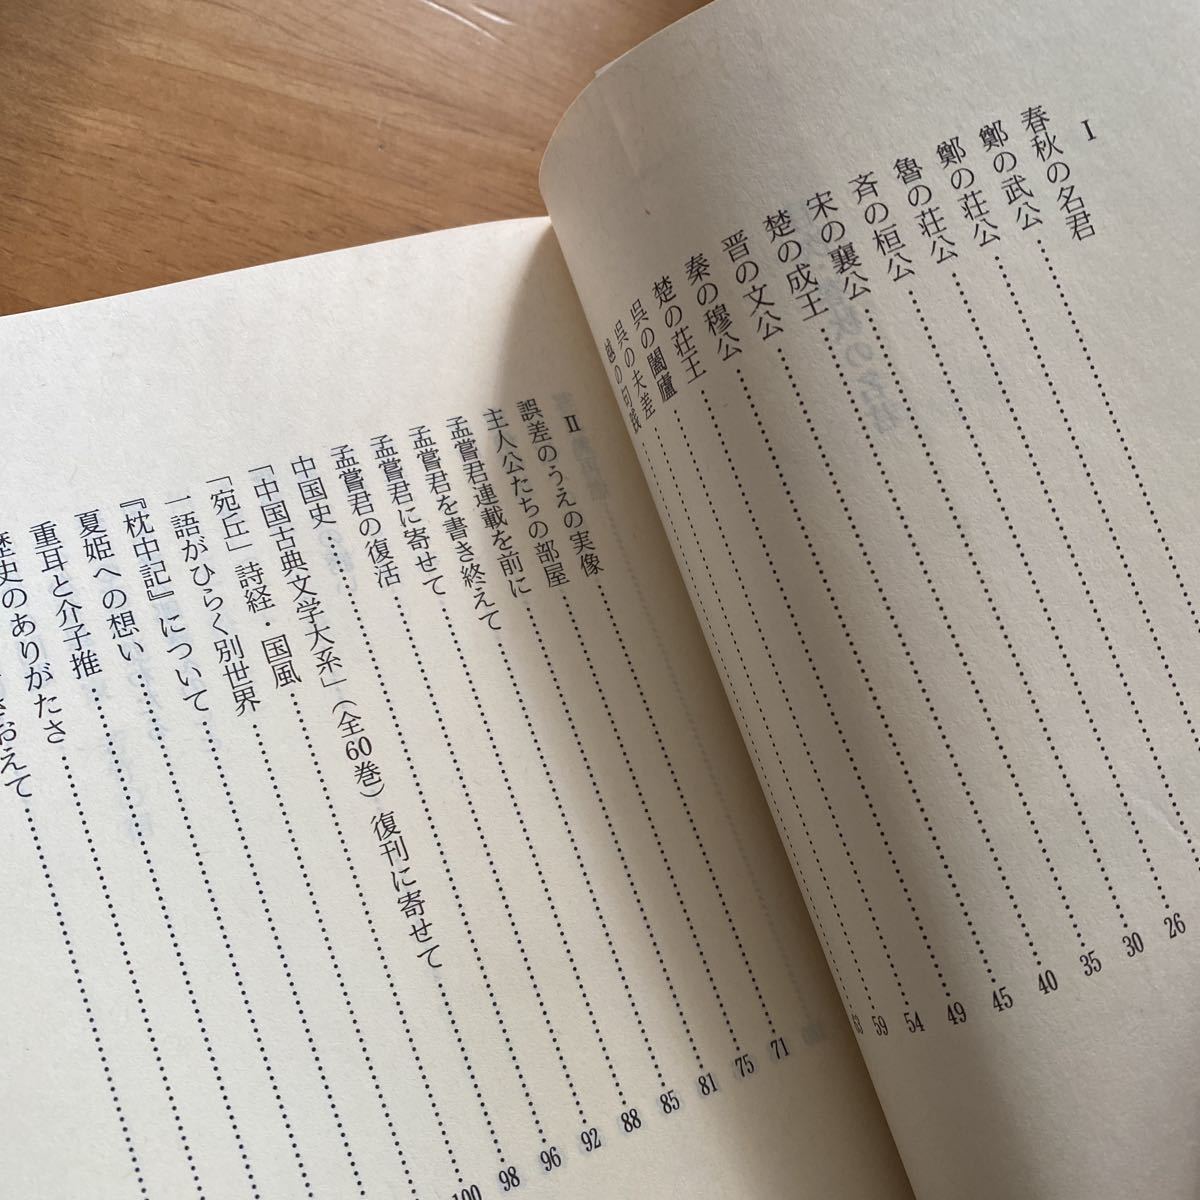 I
春秋の名君
鄭の武公
鄭の荘公
魯の荘公
斉の桓公 26
宋の襄公 30
楚の成王 35
晋の文公 40
秦の穆公 45
楚の荘王 49
呉の闔廬 54
呉の夫差 59
越の句践 63
Ⅱ
誤差のうえの実像 71
主人公たちの部屋 75
孟嘗君連載を前に 81
孟嘗君を書き終えて 85
孟嘗君に寄せて 88
孟嘗君の復活 92
中国史 96
「中国古典文学大系」（全60巻）復刊に寄せて 98
「宛丘」詩経・国風 100
一語がひらく別世界
『枕中記』について
夏姫への想い
重耳と介子推
歴史のありがたさ
おえて